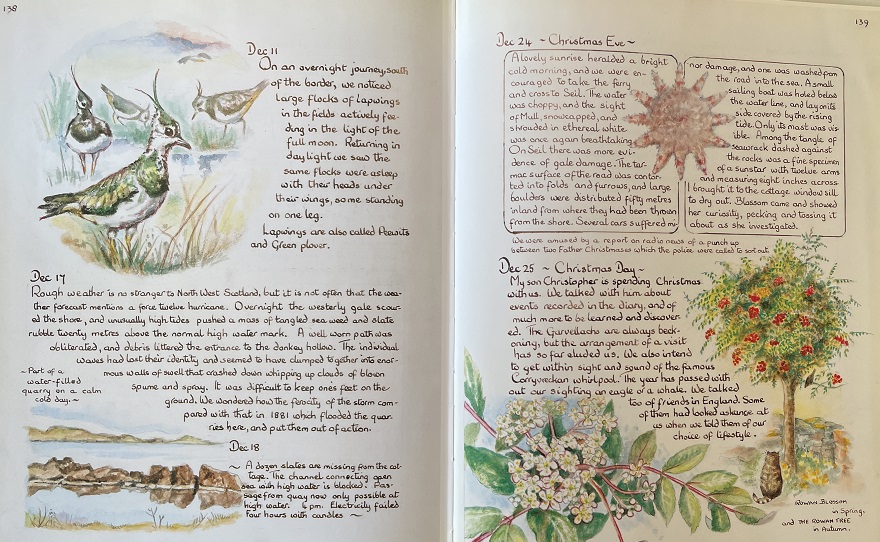 138
Dec 11
On an overnight journey, south
of the border, we noticed
large flocks of Lapwings
in the fields actively fee-
ding in the light of the
full moon. Returning in
daylight we saw the
same flocks were asleep
with their heads under
their wings, some standing
on one leg.
Lapwings are also called Peewits
and Green plover.
Dec 17
Rough weather is no stranger to North West Scotland, but it is not often that the wea-
ther forecast mentions a force twelve hurricane. Overnight the westerly gale scour-
ed the shore, and unusually high tides pushed a mass of tangled sea weed and slate
rubble twenty metres above the normal high water mark. A well worn path was
obliterated, and debris littered the entrance to the donkey hollow. The individual
waves had lost their identity and seemed to have clumped together into enor-
mous walls of swell that crashed down whipping up clouds of blown
spume and spray. It was difficult to keep ones feet on the
ground. We wondered how the ferocity of the storm com-
pared with that in 1881 which flooded the quar-
ries here, and put them out of action.
~ Part of a
water-filled
quarry on a calm
cold day. ~
Dec 18
~ A dozen slates are missing from the cot-
tage. The channel connecting open
sea with high water is blocked. Pas-
sage from quay now only possible at
high water. 6 pm. Electricity failed
Four hours with candles ~
139
Dec 24 ~ Christmas Eve ~
A lovely sunrise heralded a bright
cold morning, and we were en-
couraged to take the ferry
and cross to Seil. The water
was choppy, and the sight
of Mull, snowcapped, and
shrouded in ethereal white
was once again breathtaking.
On Seil there was more evi-
dence of gale damage. The tar-
mac surface of the road was contor-
ted into folds and furrows, and large
boulders were distributed fifty metres
inland from where they had been thrown
from the shore. Several cars suffered mi-
nor damage, and one was washed from
the road into the sea. A small
sailing boat was holed below
the water line, and lay on its
side covered by the rising
tide. Only its mast was vis-
ible. Among the tangle of
seawrack dashed against
the rocks was a fine specimen
of a sunstar with twelve arms
and measuring eight inches across
I brought it to the cottage window sill
to dry out. Blossom came and showed
her curiosity, pecking and tossing it
about as she investigated.
We were amused by a report on radio news of a punch up
between two Father Christmases which the police were called to sort out.
Dec 25 ~ Christmas Day ~
My son Christopher is spending Christmas
with us. We talked with him about
events recorded in the diary, and of
much more to be learned and discover-
ed. The Garvellachs are always beck-
oning, but the arrangement of a visit
has so far eluded us. We also intend
to get within sight and sound of the famous
Corryvreckan whirlpool. The year has passed with-
out our sighting an eagle or a whale. We talked
too of friends in England. Some
of them had looked askance at
us when we told them of our
choice of lifestyle.
ROWAN BLOSSOM
in Spring,
and THE ROWAN TREE
in Autumn.